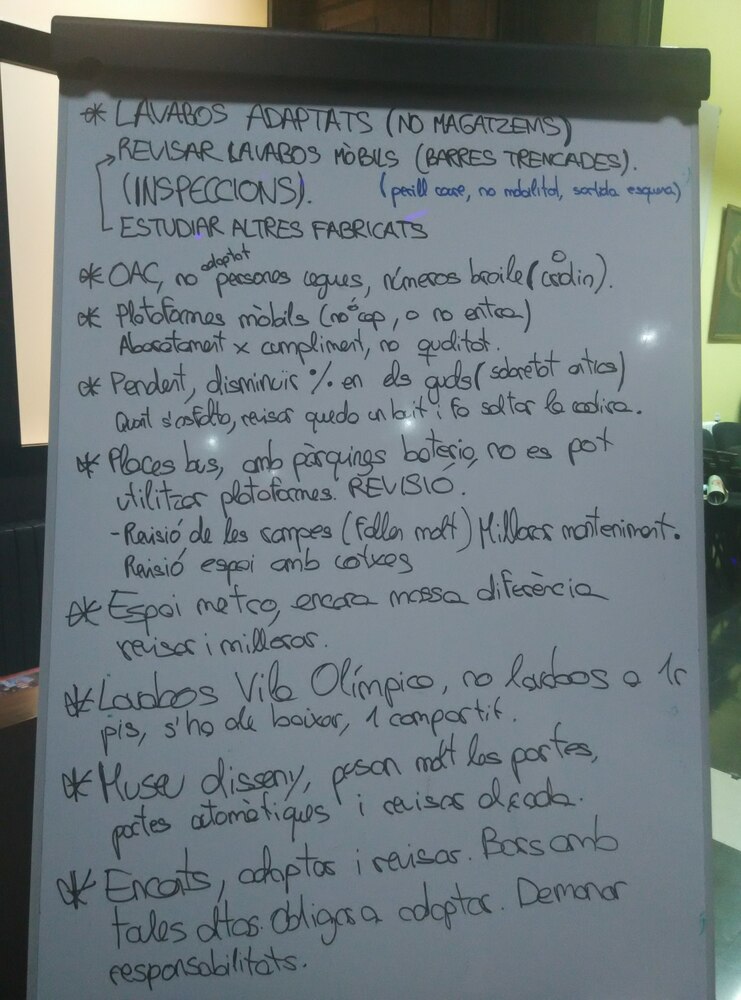 * LAVABOS ADAPTATS (NO MAGATZEMS)
REVISAR LAVABOS MÒBILS (BARRES TRENCADES).
(INSPECCIONS). (perill caure, no mobilitat, sortida esquena)
ESTUDIAR ALTRES FABRICATS
* OAC, no adaptat persones cegues, números braile (cridin).
* Plataformes mòbils (no cap, o no entra)
Abaratament x compliment, no qualitat.
* Pendent, disminuir % en els guals (sobretot antics)
Quan s'asfalta, revisar queda un bait i fa saltar la cadira.
* Places bus, amb pàrquings bateria, no es pot
utilitzar plataformes. REVISIÓ.
- Revisió de les rampes (fallen molt) Millorar manteniment.
Revisió espai amb cotxes
* Espai metro, encara massa diferència
revisar i millorar.
* Lavabos Vila Olímpica, no lavabos a 1r
pis, s'ha de baixar, 1 compartit.
* Museu disseny, pesan molt les portes,
portes automàtiques i revisar alçada.
* Encants, adaptar i revisar. Bars amb
taules altas. Obligar a adaptar. Demanar
responsabilitats.